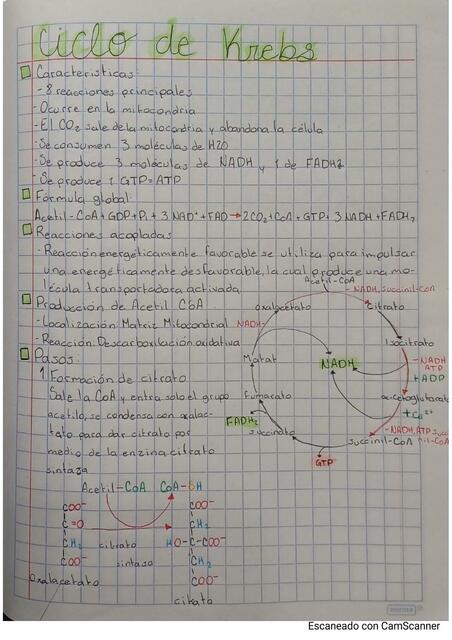 Ciclo de Krebs
Caracteristicas:
-8 reacciones principales
-Ocurre en la mitocondria
-El CO₂ sale de la mitocondria y abandona la célula
-Se consumen 3 moléculas de H2O
-Se produce 3 moléculas de NADH y 1 de FADH2
-Se produce 1 GTP=ATP
Fórmula global:
Acetil-CoA+GDP+Pi+3 NAD⁺+FAD→2CO₂+CoA+GTP+3NADH+FADH₂
Reacciones acopladas
-Reacción energéticamente favorable se utiliza para impulsar
una energéticamente desfavorable, la cual produce una mo-
lécula transportadora activada
Producción de Acetil CoA
-Localización: Matriz Mitocondrial
-Reacción: Descarboxilación oxidativa
Pasos:
1 Formación de citrato
Sale la CoA y entra solo el grupo
acetilo, se condensa con oxalac-
tato para dar citrato por
medio de la enzina citrato
sintaza
Acetil-CoA
-NADH, Succinil-CoA
oxalacetato
Citrato
NADH-
Isocitrato
Malat
NADH
-NADH
ATP
+ADP
Fumarato
α-cetoglutarato
+Ca²⁺
FADH₂
-NADH, ATP Succi
nil-CoA
succinato
succinil-CoA
GTP
Acetil-CoA
CoA-SH
COO⁻
C=O
CH₂
COO⁻
Oxalacetato
citrato
sintaso
COO⁻
CH₂
HO-C-COO⁻
CH₂
COO⁻
citrato
Escaneado con CamScanner